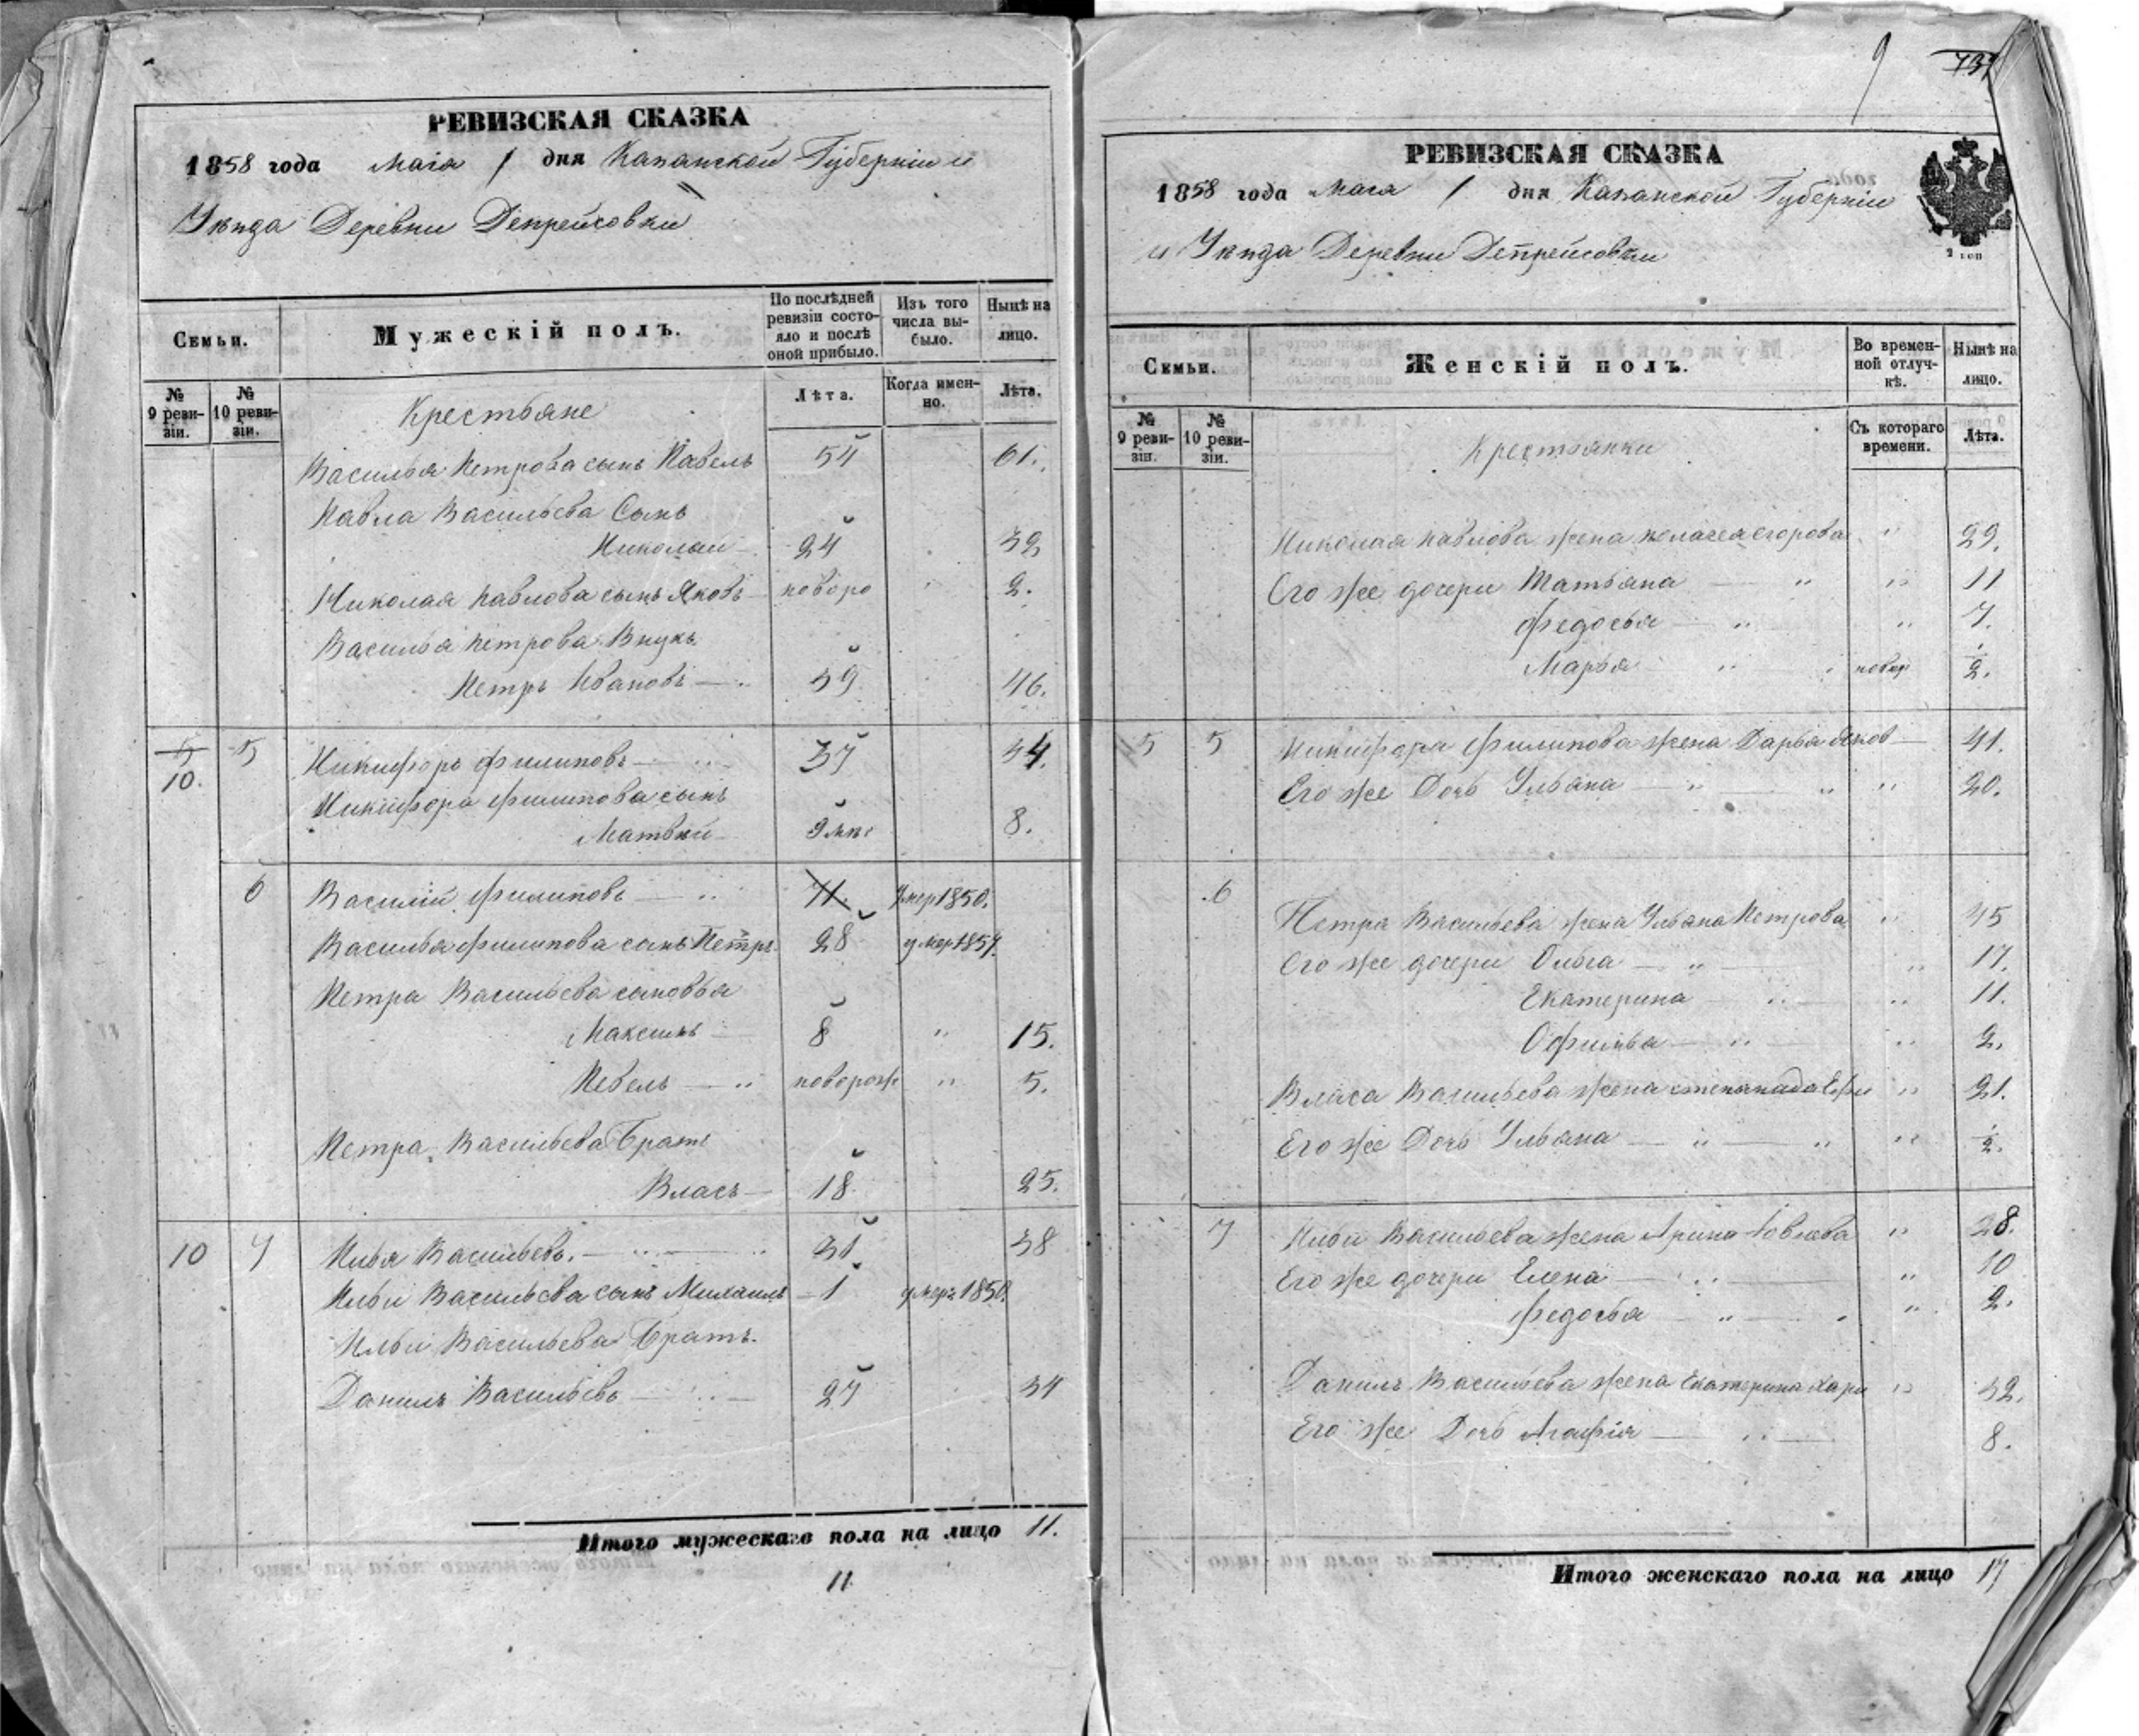 РЕВИЗСКАЯ СКАЗКА
1858 года Маія 1 дня Казанской Губерніи и
Уѣзда Деревни Депрейсовки
Семьи.
Мужескій полъ.
По послѣдней ревизіи состояло и послѣ оной прибыло.
Изъ того числа выбыло.
Нынѣ на лицо.
№ 9 ревизіи.
№ 10 ревизіи.
Лѣта.
Когда именно.
Лѣта.
Крестьяне
Василья Петрова сынъ Павелъ 54 61.
Павла Васильева Сынъ
Николай 24 32
Николая Павлова сынъ Яковъ новоро " 2.
Василья Петрова Внукъ
Петръ Ивановъ 39 46.
5 10. 5 Никифоръ Филиповъ 37 44.
Никифора Филипова сынъ
Матвѣй 9 мѣс 8.
6 Василій Филиповъ 71. Умер 1850.
Василья Филипова сынъ Петръ 28 умер 1857.
Петра Васильева сыновья
Максимъ 8 " 15.
Павелъ новорож " 5.
Петра Васильева Братъ
Власъ 18 25.
10 7 Илья Васильевъ. 31 38
Ильи Васильева сынъ Михаилъ 1 умеръ 1850.
Ильи Васильева Братъ.
Данилъ Васильевъ 27 34
Итого мужескаго пола на лицо 11.
11.
9
737
РЕВИЗСКАЯ СКАЗКА
1858 года Мага 1 дня Казанской Губерніи
и Уѣзда Деревни Депрейсовки
Семьи.
Женскій полъ.
Во временной отлучкѣ.
Нынѣ на лицо.
№ 9 ревизіи.
№ 10 ревизіи.
Съ котораго времени.
Лѣта.
Крестьянки
Николая Павлова жена Пелагея Егорова " 29.
Его же дочери Татьяна " " 11
Федосья " " 7.
Марья " новор 1/2.
5 5 Никифора Филипова жена Дарья Яков 41.
Его же Дочь Ульяна " " " 20.
6
Петра Васильева жена Ульяна Петрова " 45
Его же дочери Ольга " " 17.
Екатерина " " 11.
Офимья " " 2.
Власа Васильева жена Степанида Ефи " 21.
Его же Дочь Ульяна " " " 1/2.
7 Ильи Васильева жена Арина Іовлева " 28.
Его же дочери Елена " " 10
Федосья " " 2.
Данилъ Васильева жена Екатерина Хари " 32.
Его же Дочь Агафія " 8.
Итого женскаго пола на лицо 17